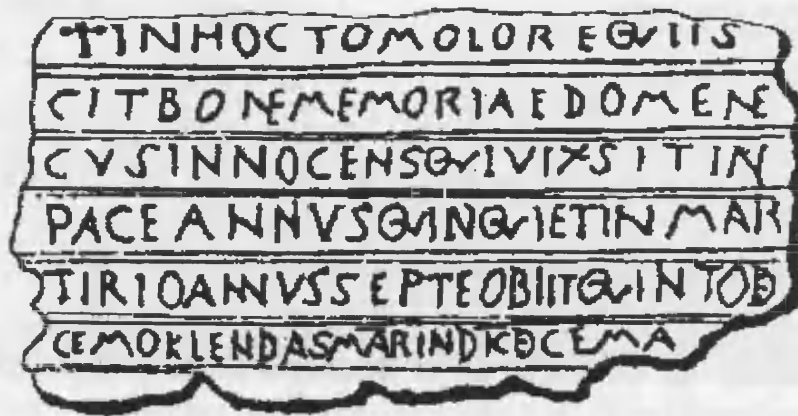 †INHOC TOMOLOREQVIIS
CITBONEMEMORIAEDOMENE
CVSINNOCENSQVIVIXSITIN
PACEANNVSQVINQVIETINMAR
TIRIOANNVSSEPTEOBIITQVINTOD
CEMOKLENDASMARINDKDCEMA